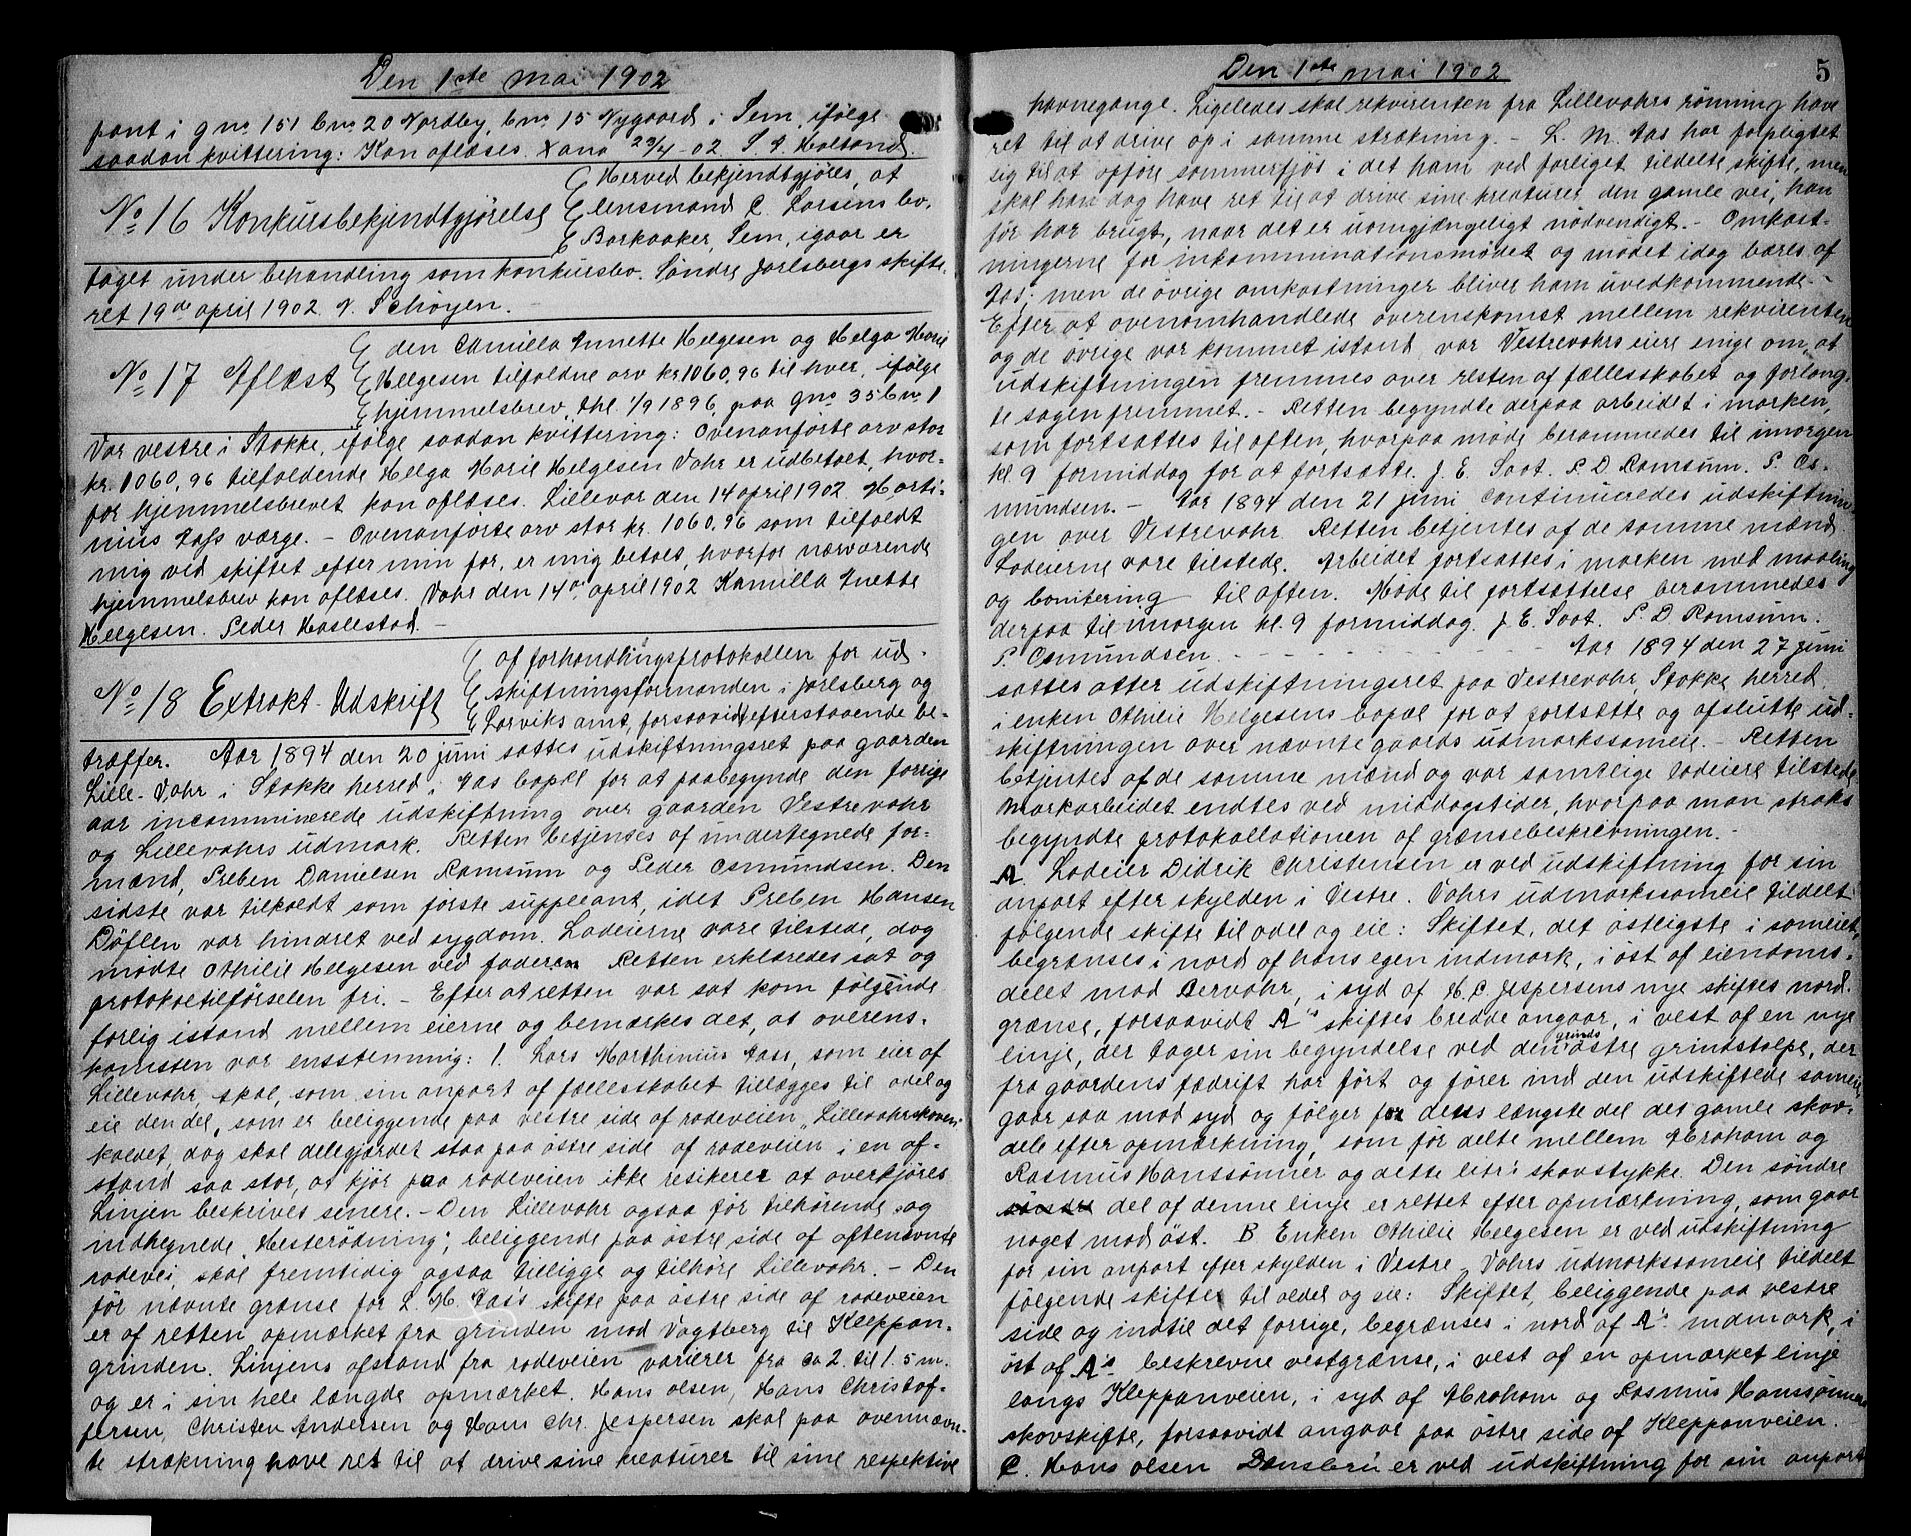 Den 1ste mai 1902
pant i gno 151 bno 20 Nordby, bno 15 Nygaard i Sem, ifølge
saadan kvittering: Kan aflæses. Xania 29/4-02. S. A. Holtand.
No 16 Konkursbekjendtgjørelse
Herved bekjendtgjøres, at
lensmand C. Larsens bo,
Barkaaker, Sem, igaar er
taget under behandling som konkursbo. Søndre Jarlsbergs skifte-
ret 19de april 1902. N. Schøyen.
No 17 Aflæst
den Camilla Annette Helgesen og Helga Marie
Helgesen tilfaldne arv kr 1060,96 til hver, ifølge
hjemmelsbrev, thl. 1/9 1896, paa gno 35 bno 1
Var vestre i Stokke, ifølge saadan kvittering: Ovenanførte arv stor
kr. 1060,96 tilfaldende Helga Marie Helgesen Vahr er udbetalt, hvor-
for hjemmelsbrevet kan aflæses. Lillevar den 14 april 1902. Marti-
nius Aass værge. - Ovenanførte arv stor kr. 1060,96 som tilfaldt
mig ved skiftet efter min far, er mig betalt, hvorfor nærværende
hjemmelsbrev kan aflæses. Vahr den 14de april 1902 Kamilla Anette
Helgesen. Peder Haslestad. -
No 18 Extrakt-Udskrift
af forhandlingsprotokollen for ud-
skiftningsformanden i Jarlsberg og
Larviks amt, forsaavidt efterstaaende be-
træffer. Aar 1894 den 20 juni sattes udskiftningsret paa gaarden
Lille-Vahr i Stokke herred i Aas bopæl for at paabegynde den forrige
aar incamminerede udskiftning over gaarden Vestrevahr
og Lillevahrs udmark. Retten betjenses af undertegnede for-
mænd, Preben Danielsen Ramsum og Peder Osmundsen. Den
sidste var tilkaldt som første suppleant, idet Preben Hansen
Døflen var hindret ved sygdom. Lodeierne vare tilstede, dog
mødte Othilie Helgesen ved faderen. Retten erklæredes sat og
protokoltilførselen fri. - Efter at retten var sat kom følgende
forlig istand mellem eierne og bemærkes det, at overens-
komsten var ensstemmig: 1. Lars Marthinius Aass, som eier af
Lillevahr, skal, som sin anpart af fællesskabet tillægges til odel og
eie den del, som er beliggende paa vestre side af rodeveien „Lillevahrskoven"
kaldet, dog skal delegjærdet staa paa østre side af rodeveien i en af-
stand saa stor, at kjør paa rodeveien ikke resikerer at overkjøres
Linjen beskrives senere. - Den Lillevahr ogsaa før tilhørende og
indhegnede „Hesterødning", beliggende paa østre side af oftenævnte
rodevei, skal fremtidig ogsaa tilligge og tilhøre Lillevahr. - Den
før nævnte grænse for L. M. Aas's skifte paa østre side af rodeveien
er af retten opmærket fra grinden mod Vagtberg til Kleppan-
grinden. Linjens afstand fra rodeveien varierer fra ca 2. til 1.5 m.
og er i sin hele længde opmærket. Hans Olsen, Hans Christof-
fersen, Christen Andersen og Hans Chr. Jespersen skal paa ovennævn-
te strækning have ret til at drive sine kreaturer til sine respektive
Den 1ste mai 1902
5
havnegange. Ligeledes skal rekvirenten fra Lillevahrs rønning have
ret til at drive op i samme strækning. - L. M. Aas har forpligtet
sig til at opføre sommerfjøs i det ham ved forliget tildelte skifte, men
skal han dog have ret til at drive sine kreaturer den gamle vei, han
før har brugt, naar det er uomgjængeligt nødvendigt. - Omkost-
ningerne for inkomminationsmødet og mødet idag bæres af
Aas; men de øvrige omkostninger bliver ham uvedkommende. -
Efter at ovenomhandlede overenskomst mellem rekvirenten
og de øvrige var kommet istand, var Vestrevahrs eiere enige om, at
udskiftningen fremmes over resten af fællesskabet og forlang-
te sagen fremmet. - Retten begyndte derpaa arbeidet i marken,
som fortsattes til aften, hvorpaa møde berammedes til imorgen
kl. 9 formiddag for at fortsætte. J. E. Soot. P. D. Ramsum. P. Os-
mundsen. - Aar 1894 den 21 juni continueredes udskiftnin-
gen over Vestrevahr. Retten betjentes af de samme mænd
Lodeierne vare tilstede. Arbeidet fortsattes i marken med maaling
og bonitering til aften. Møde til fortsættelse berammedes
derpaa til imorgen kl. 9 formiddag. J. E. Soot. P. D. Ramsum.
P. Osmundsen. - Aar 1894 den 27 juni
sattes atter udskiftningsret paa Vestrevahr, Stokke herred
i enken Othilie Helgesens bopæl for at fortsætte og afslutte ud-
skiftningen over nævnte gaards udmarkssameie. - Retten
betjentes af de samme mænd og var samtlige lodeiere tilstede
Markarbeidet endtes ved middagstider, hvorpaa man straks
begyndte protokollationen af grænsebeskrivningen. -
A. Lodeier Didrik Christensen er ved udskiftning for sin
anpart efter skylden i Vestre-Vahrs udmarkssameie tildelt
følgende skifte til odel og eie: Skiftet, det østligste i sameiet,
begrænses i nord af hans egen indmark, i øst af eiendoms-
delet mod Bervahr, i syd af H. C. Jespersens nye skiftes nord-
grænse, forsaavidt A's skiftes bredde angaar, i vest af en nye
linje, der tager sin begyndelse ved den grinds østre grindstolpe, der
fra gaardens fædrift har ført og fører ind den udskiftede sameie,
gaar saa mod syd og følger for dens længste del det gamle skov-
dele efter opmærkning, som før delte mellem Abraham og
Rasmus Hanssønner og dette litr's skovstykke. Den søndre
søndre del af denne linje er rettet efter opmærkning, som gaar
noget mod øst. B Enken Othilie Helgesen er ved udskiftning
for sin anpart efter skylden i Vestre-Vahrs udmarkssameie tildelt
følgende skifte til odel og eie: Skiftet, beliggende paa vestre
side og indtil det forrige, begrænses i nord af A's indmark, i
øst af A's beskrevne vestgrænse, i vest af en opmærket linje
langs Kleppanveien, i syd af Abraham og Rasmus Hanssønners
skovskifte, forsaavidt angaar paa østre side af Kleppanveien.
C. Hans Olsen Densbru er ved udskiftning for sin anpart